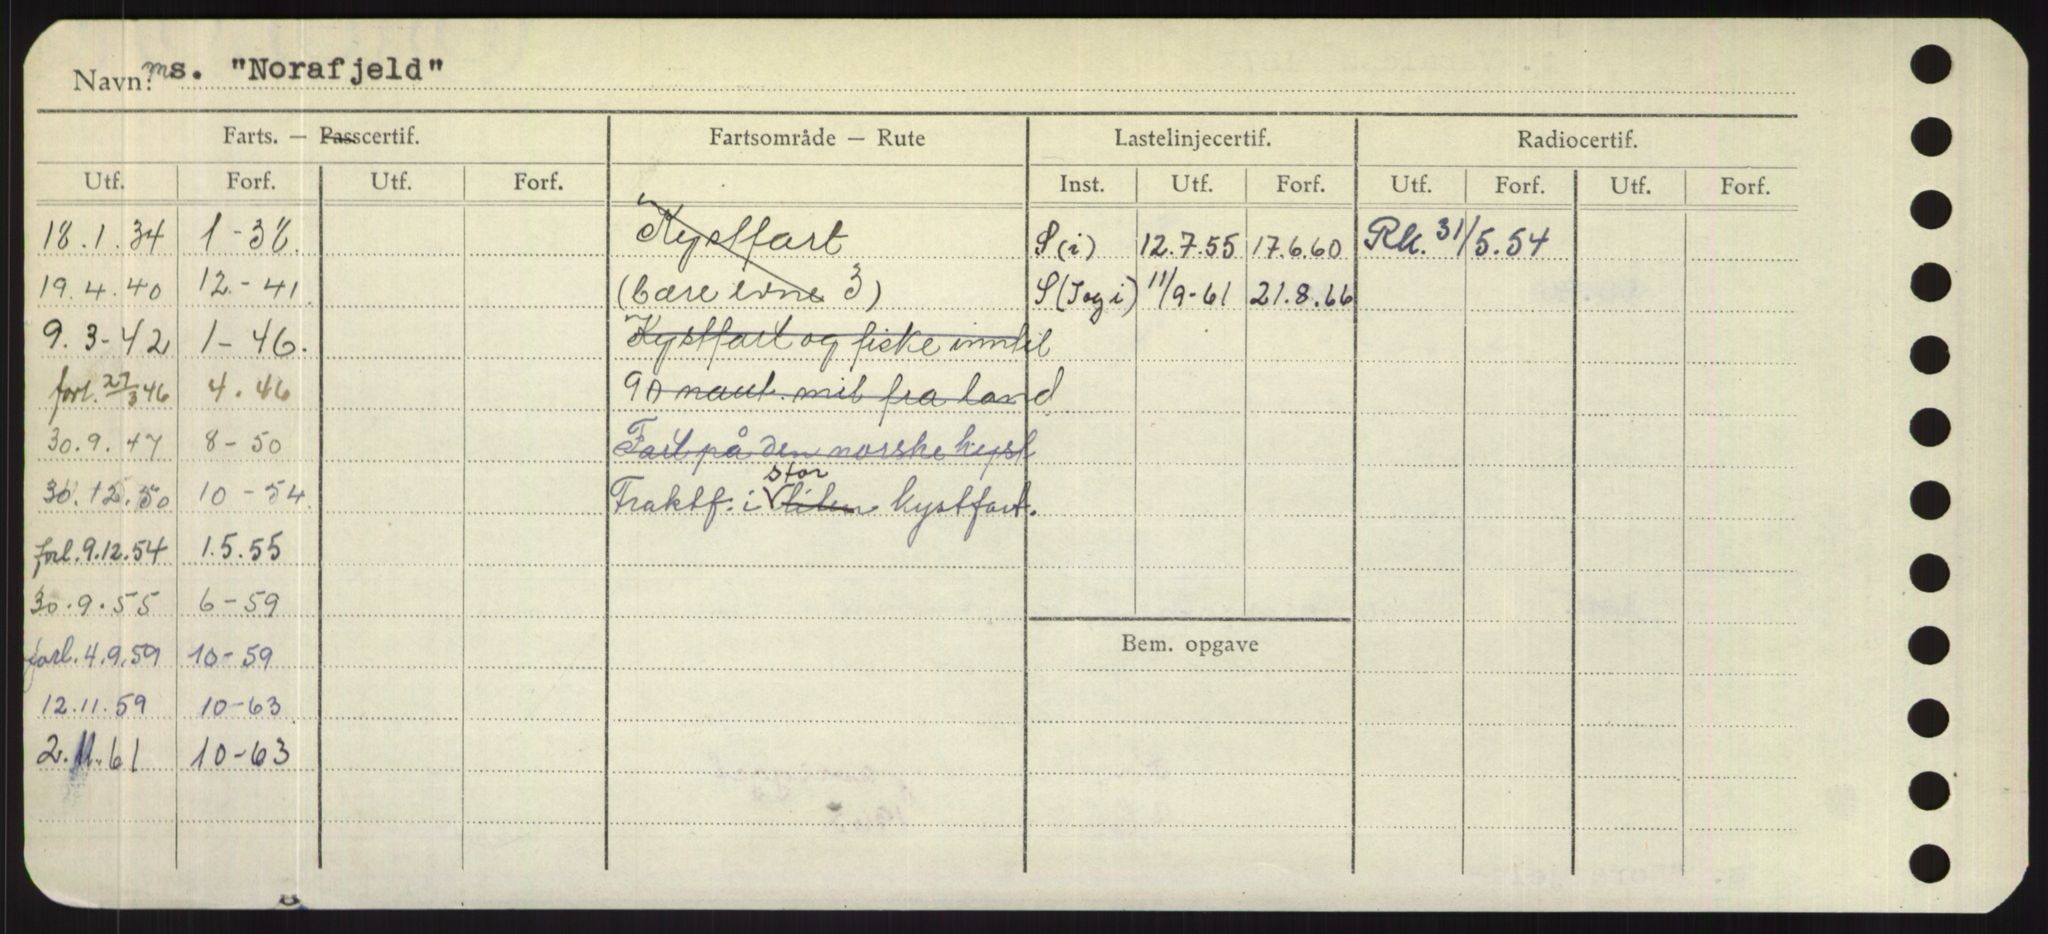 Navn: ms. "Norafjeld"
Farts. — Passcertif. Fartsområde — Rute Lastelinjecertif. Radiocertif.
Utf. Forf. Utf. Forf. Inst. Utf. Forf. Utf. Forf. Utf. Forf.
18.1.34 1-38. Kystfart S(i) 12.7.55 17.6.60 Rk. 31/5.54
19.4.40 12.-41. (bære evne 3) S(J og i) 11/9-61 21.8.66
9.3-42 1-46. Kystfart og fiske inntil
forl. 27/3 46 4.46 90 naut. mil fra land
30.9.47 8-50 Fart på den norske kyst
30.12.50 10-54. Fraktf. i stor liten kystfart.
forl. 9.12.54 1.5.55
30.9.55 6-59
forl. 4.9.59 10-59
Bem. opgave
12.11.59 10-63
2.11.61 10-63